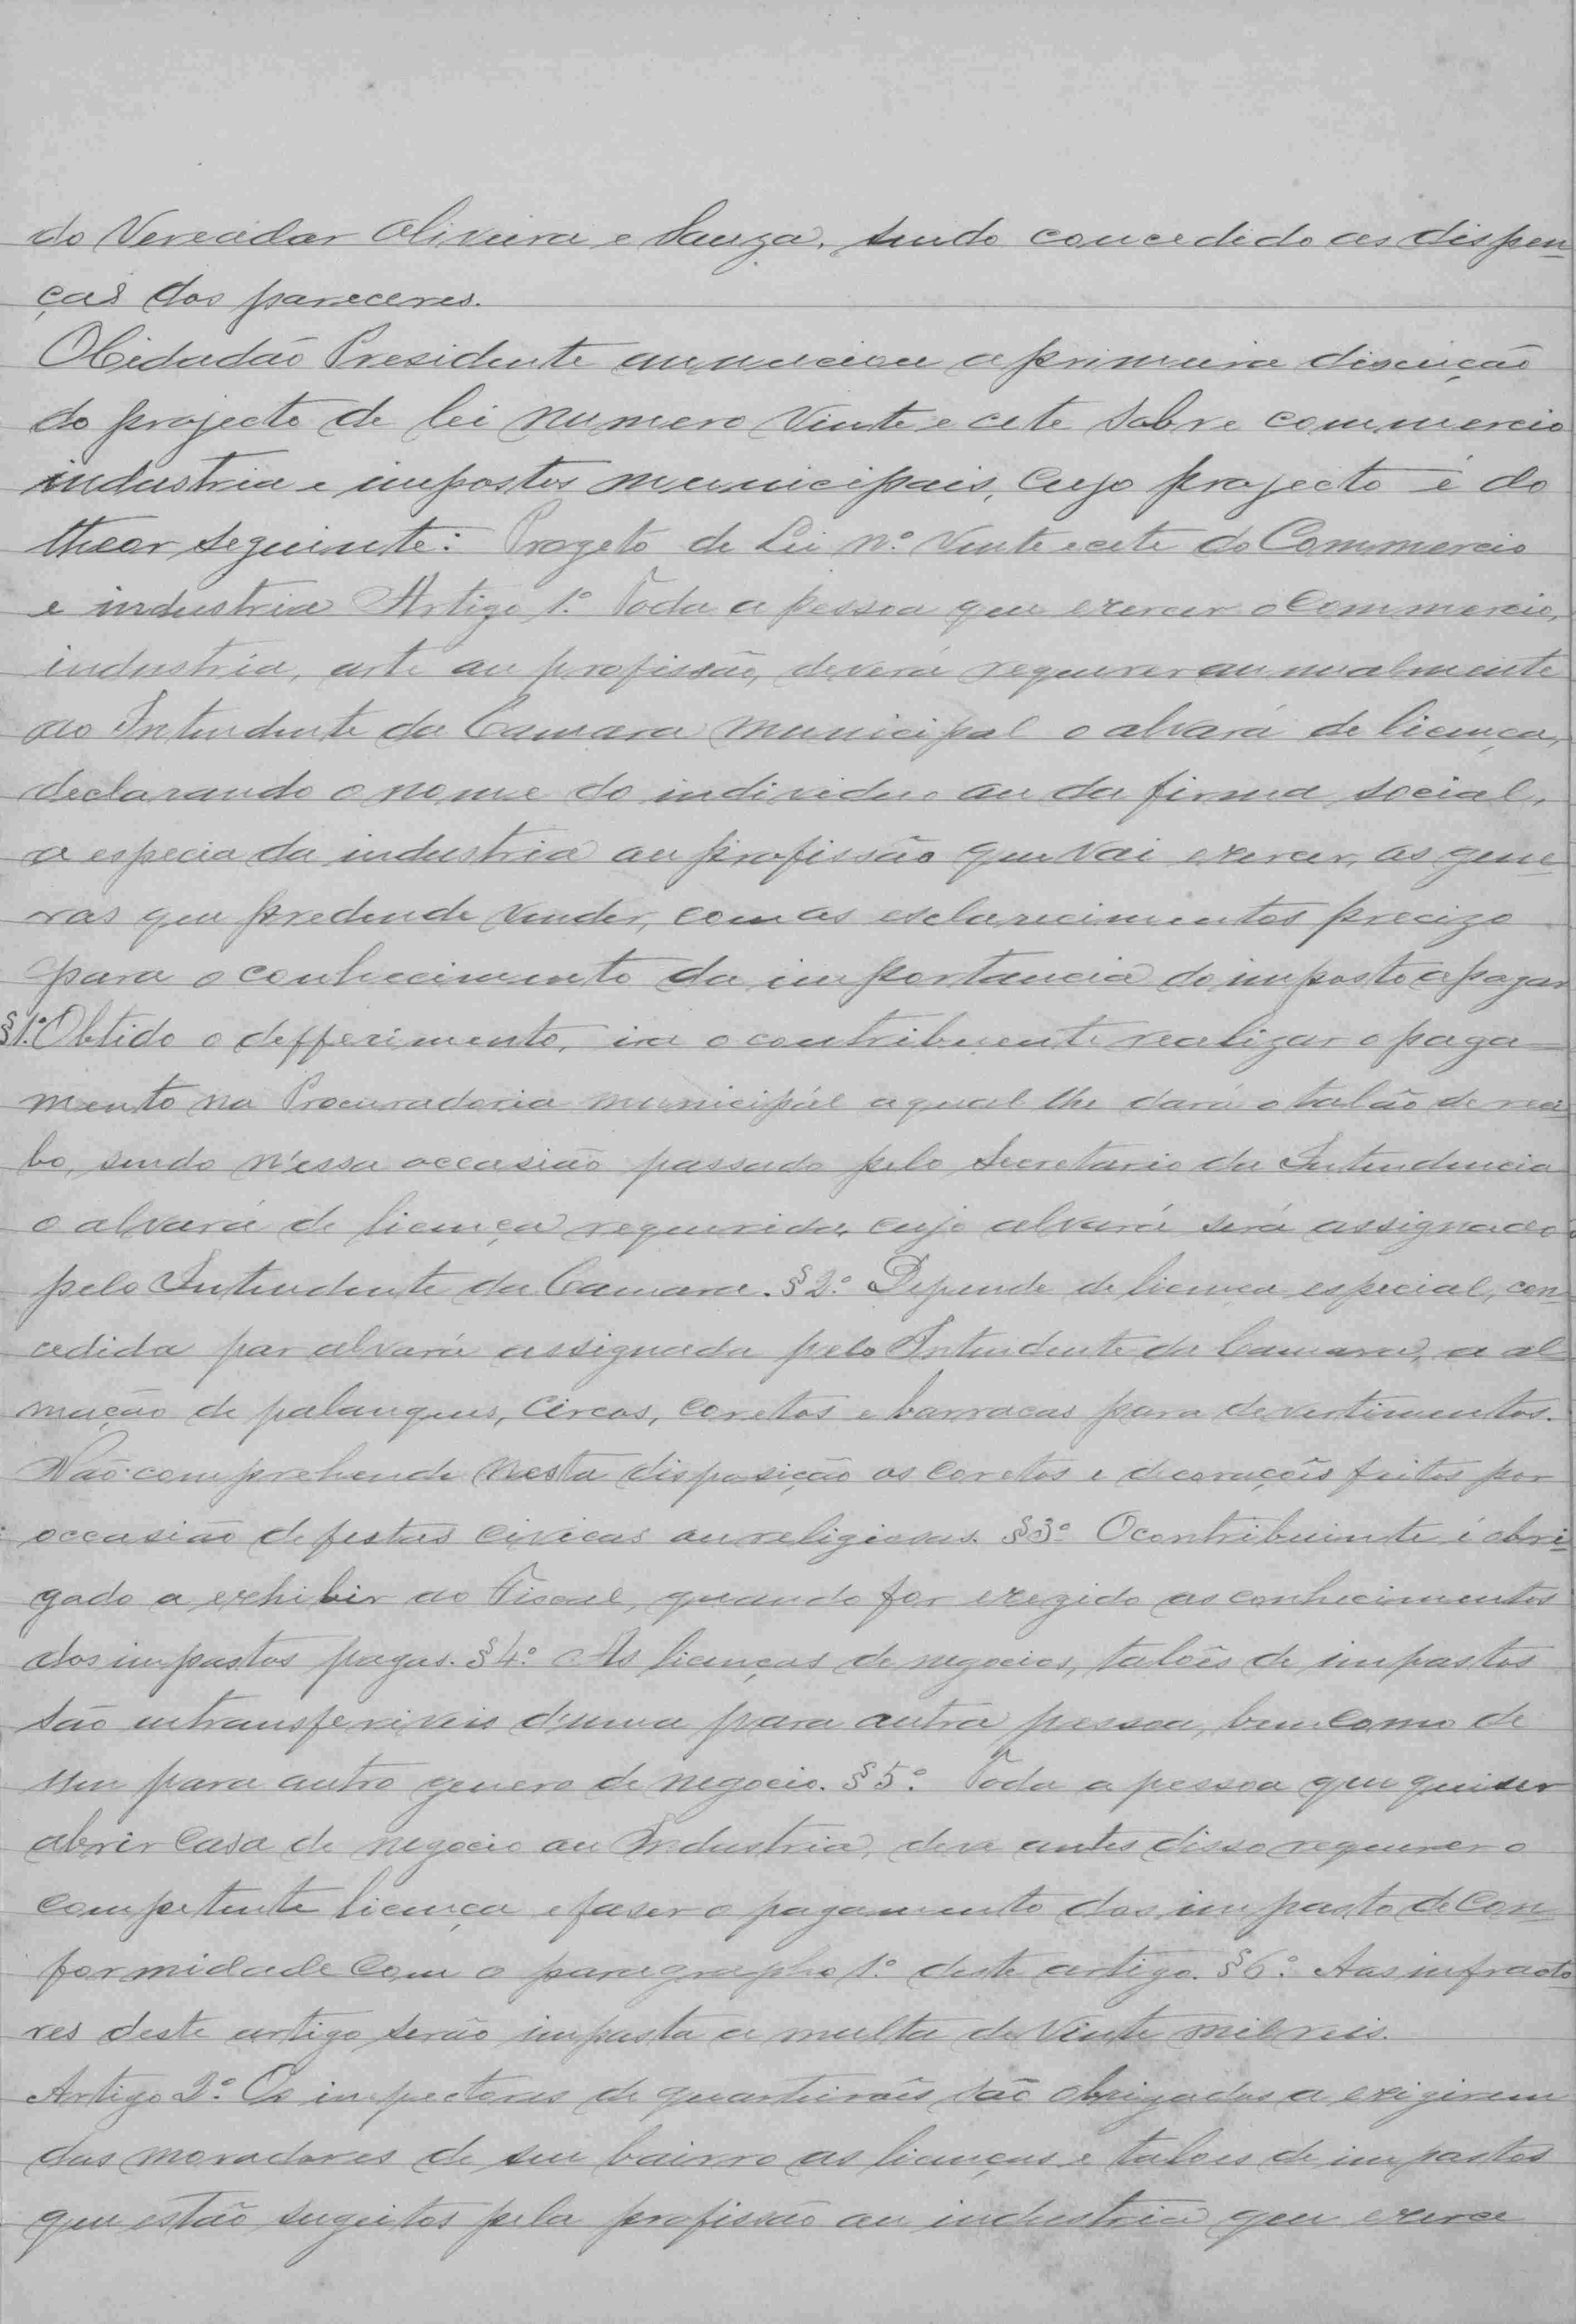 do Vereador Oliveira e Souza, sendo concedido as dispen-
ças dos pareceres.
O Cidadão Presidente annunciou a primeira discução
do projecto de lei numero vinte e cete sobre commercio
industria e impostos municipais, cujo projecto é do
theor seguinte: Progeto de Lei nº vinte e cete do Commercio
e industria Artigo 1º Toda a pessoa que exercer o Commercio,
industria, arte ou profissão, deverá requerer annualmente
ao Intendente da Camara municipal o alvará de licença,
declarando o nome do individuo ou da firma social,
a especia da industria ou profissão que vai exercer, os gene-
ros que predende vender, com os esclarecimentos precizo
para o conhecimento da importancia do imposto a pagar
§1º Obtido o defferimento, ira o contribuente realizar o paga-
mento na Procuradoria municipál a qual lhe dará o talão de reci-
bo, sendo n'essa occasião passado pelo Secretario da Intendencia
o alvará de licença requerida, cujo alvará será assignado
pelo Intendente da Camara. §2º Depende de licença especial, con-
cedida por alvará assignada pelo Intendente da Camara, a al-
mação de palanques, circos, coretos e barracas para devertimentos.
Não comprehende nesta disposição os coretos e decorações feitos por
occasião de festas civicas ou religiosas. §3º O contribuinte é obri-
gado a exhibir ao Fiscal, quando for exegido os conhecimentos
dos impostos pagos. §4º As licenças de negocios, talões de impostos
são intransferiveis d'uma para outra pessoa, bem como de
um para outro genero de negocio. §5º Toda a pessoa que quiser
abrir casa de negocio ou Industria, deve antes disso requerer o
competente licença e faser o pagamento dos imposto de con-
formidade com o paragrapho 1º deste artigo. §6º Aos infracto-
res deste artigo serão imposta a multa de vinte mil reis.
Artigo 2º Os inspectores de quarteirões são obrigados a exigirem
dos moradores de seu bairro as licenças e talões de impostos
que estão sugeitos pela profissão ou industria que exerce